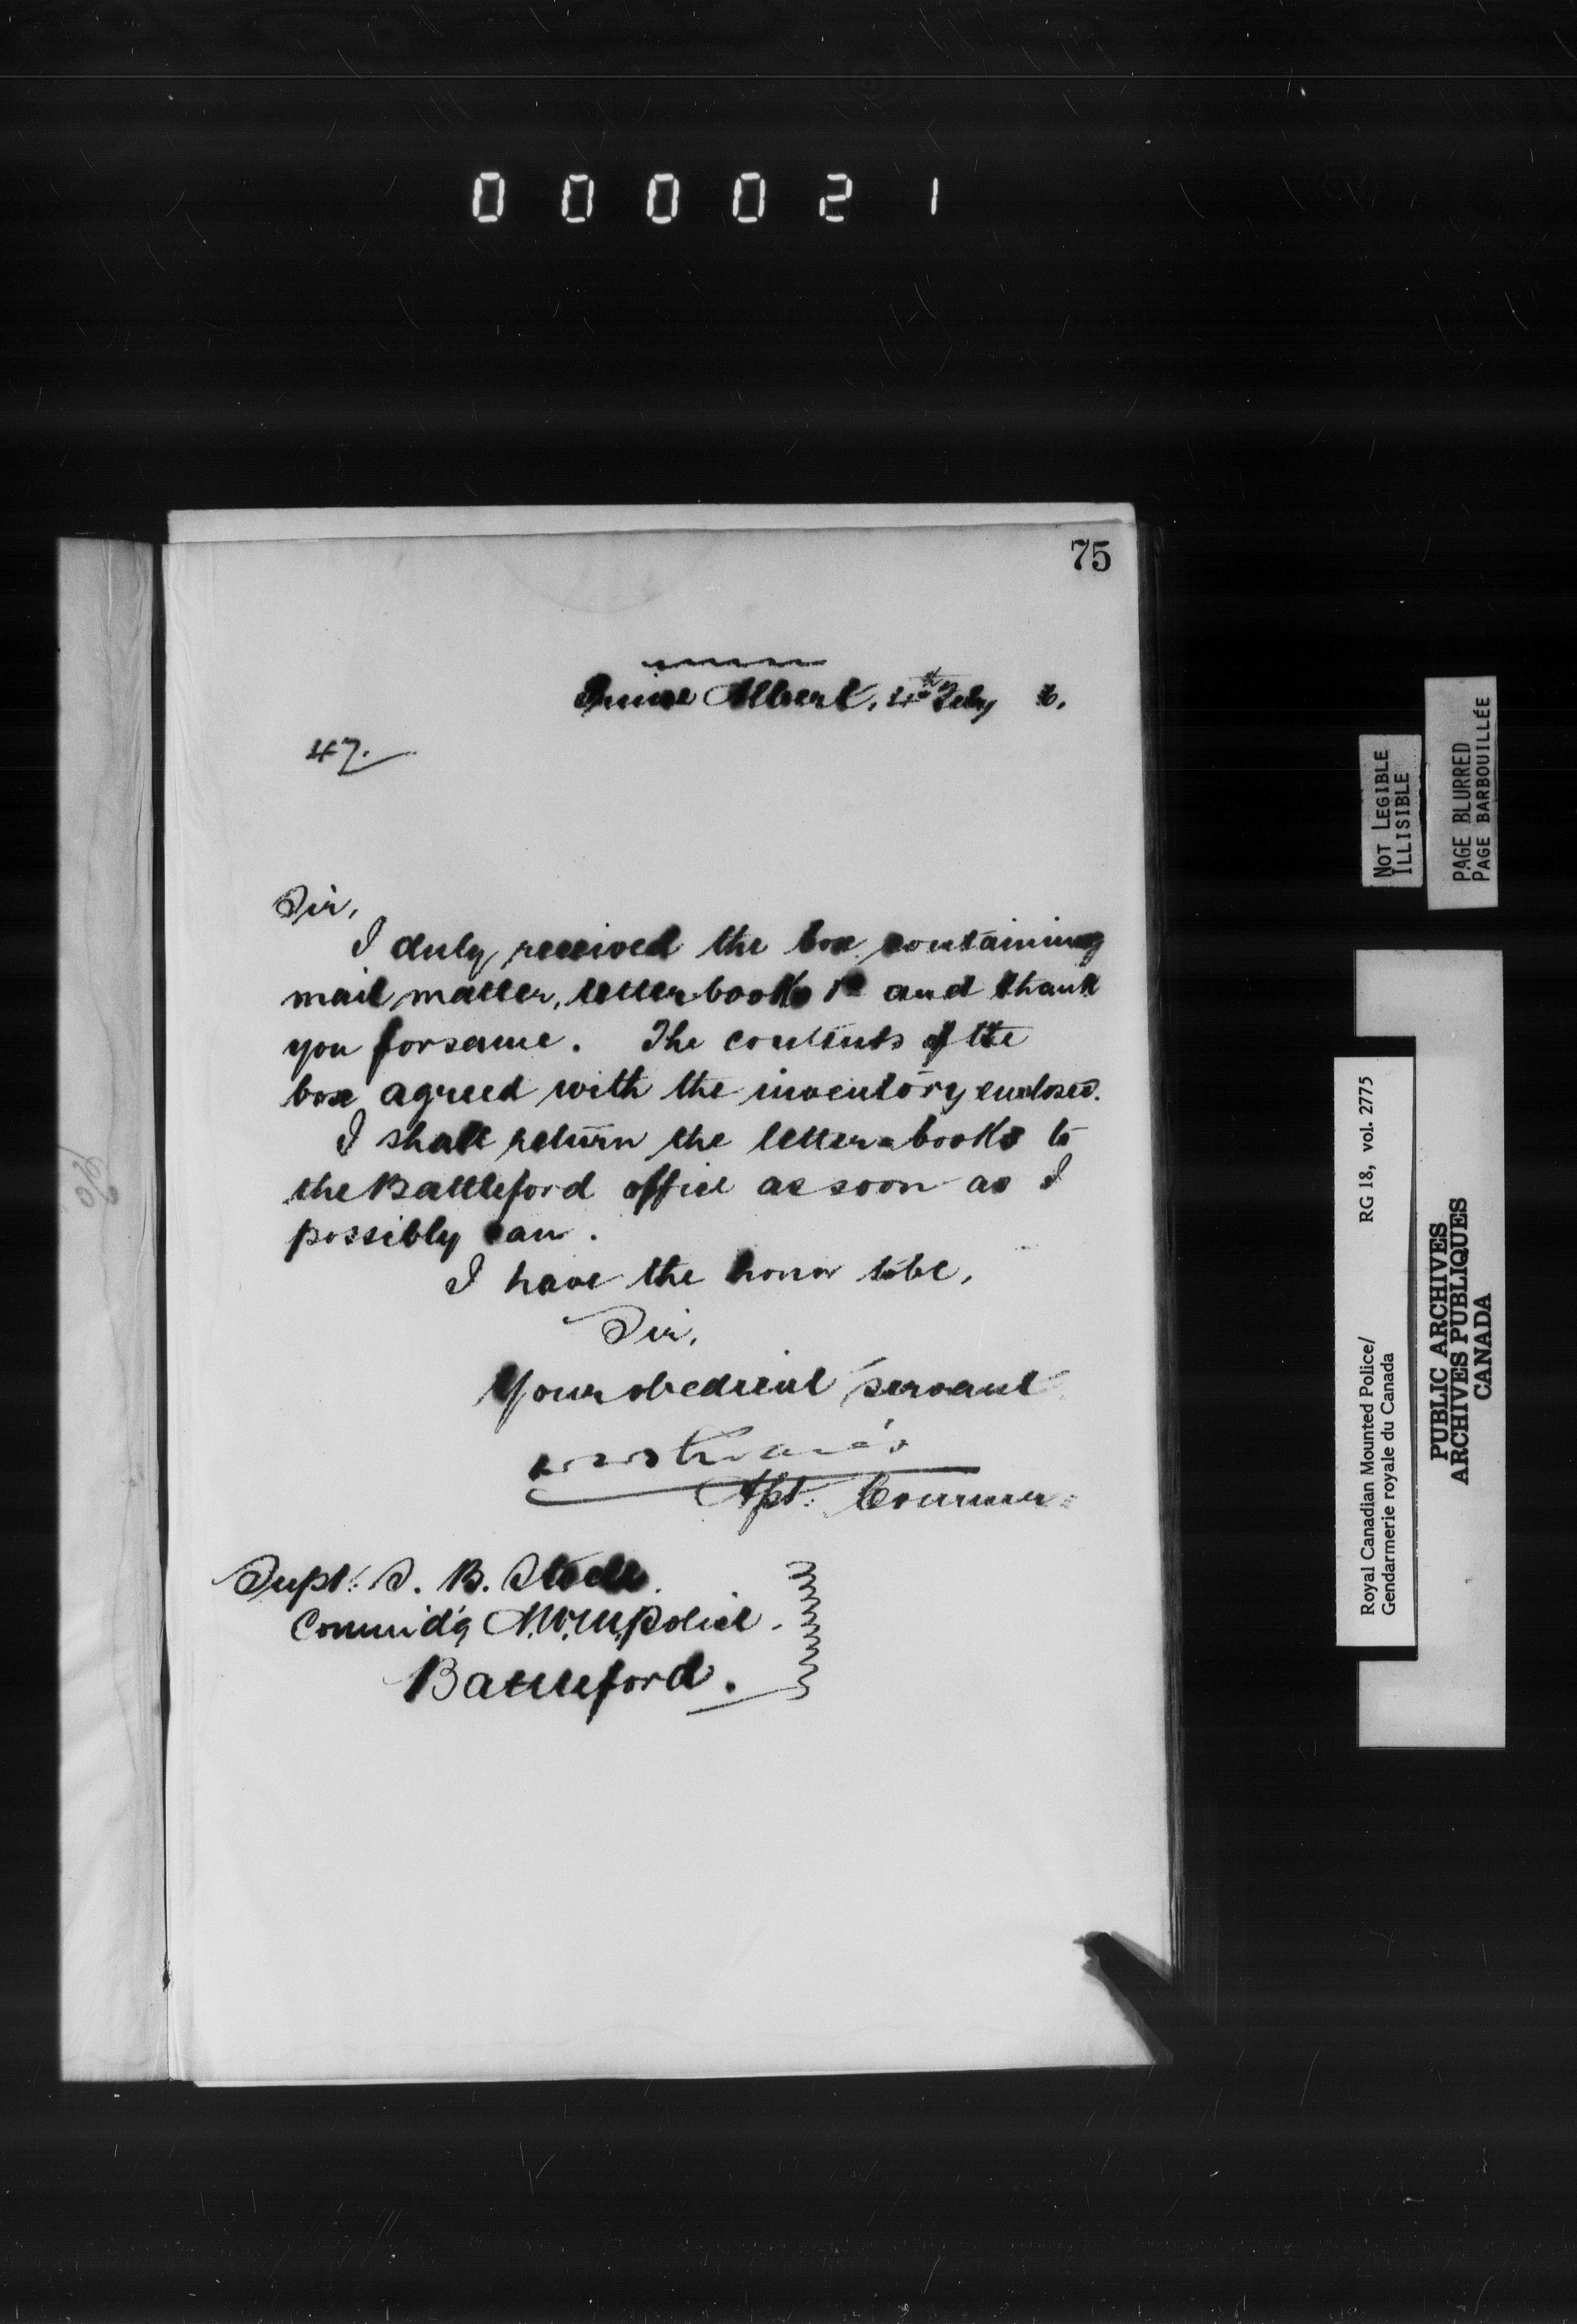 000021
75
Prince Albert, 4th Feby 6.
47.
Sir,
I duly received the box containing
mail matter, letter-books &c and thank
you for same. The contents of the
box agreed with the inventory enclosed.
I shall return the letter-books to
the Battleford office as soon as I
possibly can.
I have the honor to be,
Sir,
Your obedient servant
Asst: Commr:
Supt: S. B. Steele
Commd'g N.W.M. Police.
Battleford.
NOT LEGIBLE
ILLISIBLE
PAGE BLURRED
PAGE BARBOUILLÉE
Royal Canadian Mounted Police/ RG 18, vol. 2775
Gendarmerie royale du Canada
PUBLIC ARCHIVES
ARCHIVES PUBLIQUES
CANADA